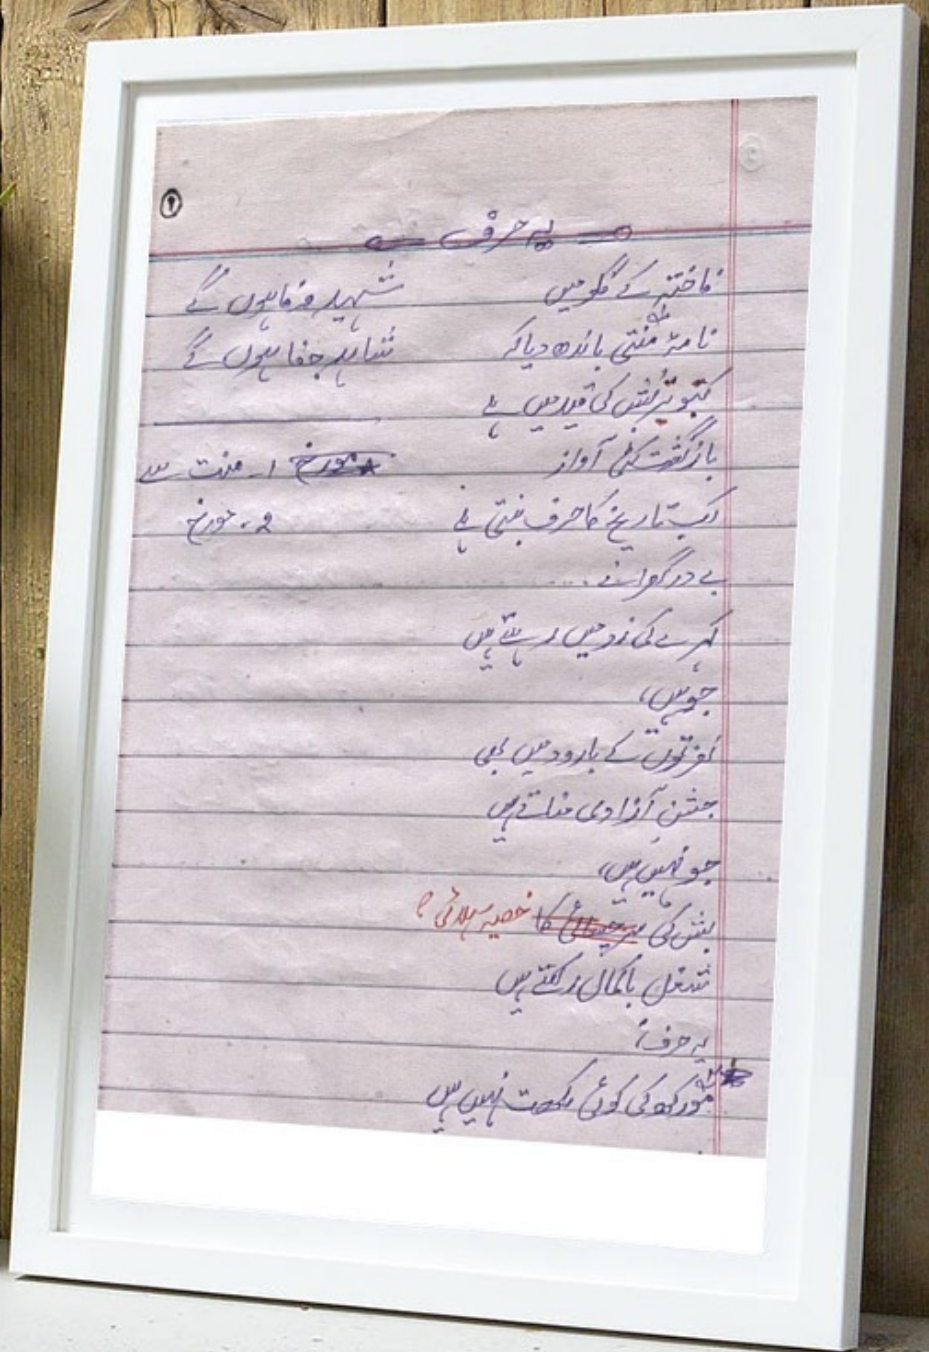 یہ حرف
فاختہ کے گلو میں
نامہ منتی باندھ دیا کہ
کی قید میں ہے
بازگشت کئی آواز
اک تاریخ کا حرف بنتی ہے
بے در گھرانے ....
کہرے کی زد میں رہتے ہیں
جو ہیں،
نفرتوں کے بارود میں بھی
جشنِ آزادی مناتے ہیں
جو نہیں ہیں،
بشن کی خصیہ سہلائی ؟
شغل باکمال رکھتے ہیں
یہ حرف،
مورکھ کی کوئی لکھت نہیں ہیں
شہید وفا ہوں گے
شاہدِ جفا ہوں گے
۱۔ منت سے
۲۔ مورخ